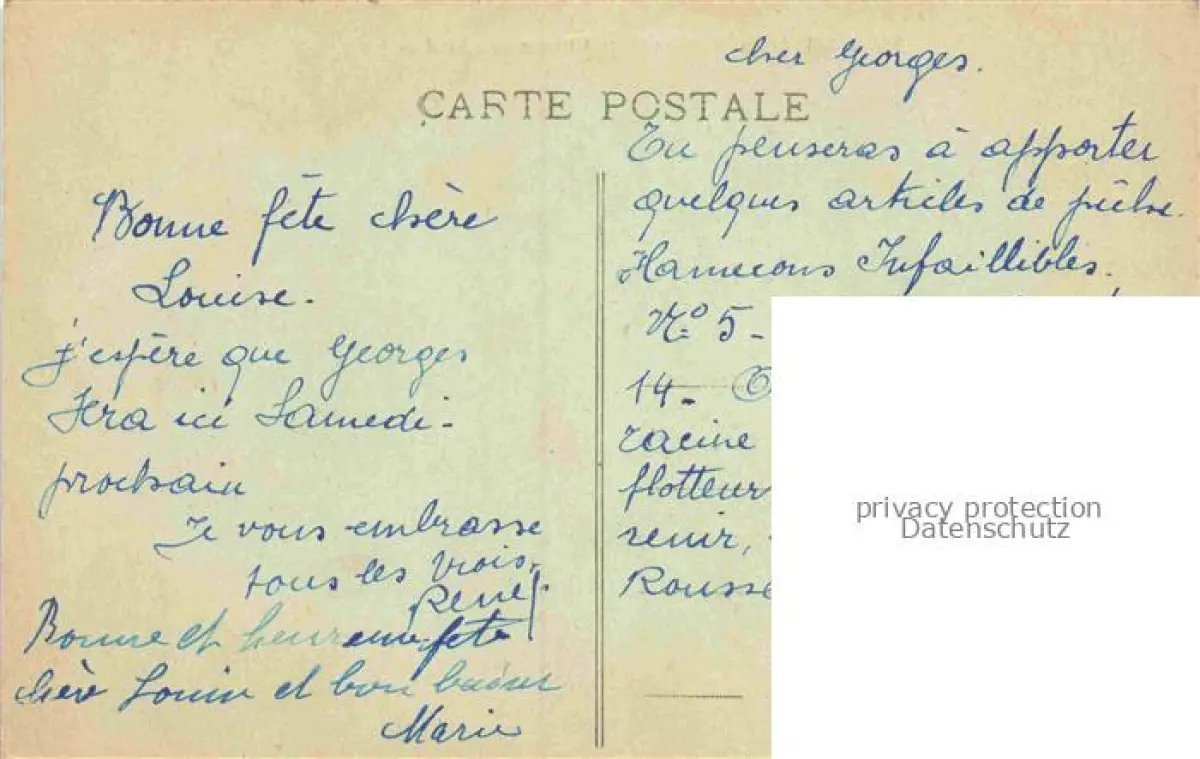 CARTE POSTALE
Bonne fête chère
Louise.
j'espère que Georges
sera ici Samedi-
prochain
Je vous embrasse
tous les trois,
René
Bonne et heureuse fête
chère Louise et bon baiser
Marie
cher Georges.
Tu penseras à apporter
quelques articles de pêche.
Hamecons Infaillibles.
N.º 5 -
14 -
racine
flotteur
Rousse
privacy protection
Datenschutz